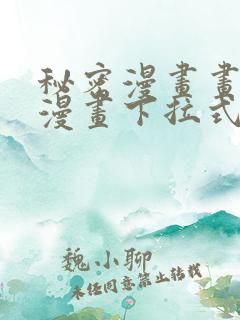 秘密漫畫畫
漫畫下拉式
魏小聊
未任同意禁止转载